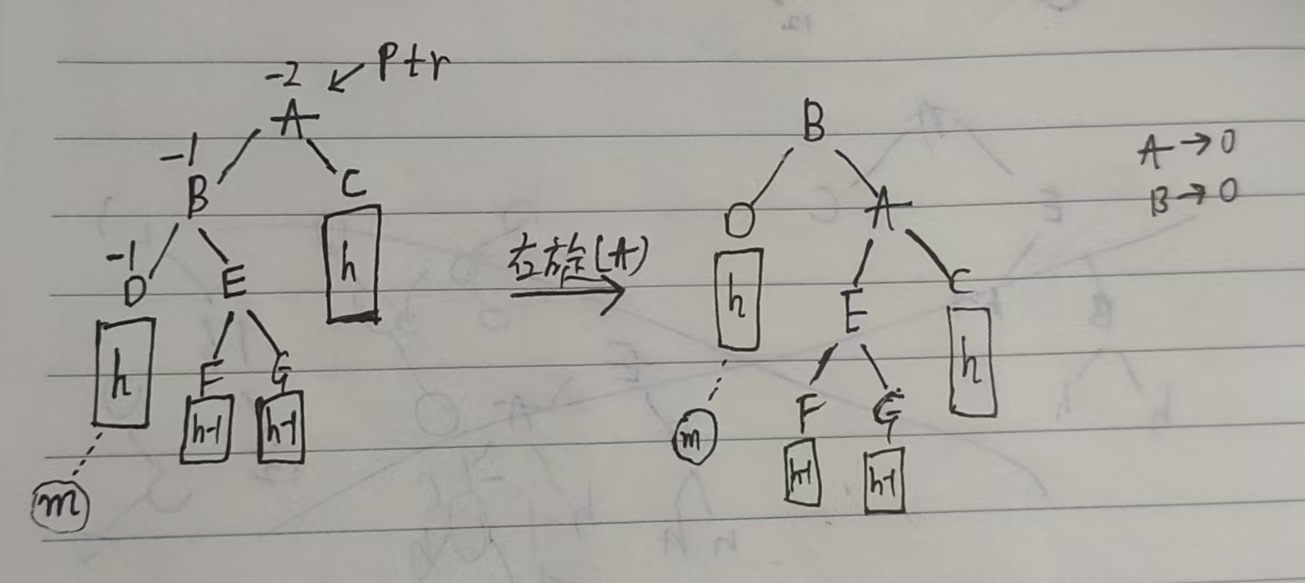 -2
Ptr
A
-1
B
C
h
-1
D
E
h
F
G
h-1
h-1
m
右旋(A)
B
D
A
h
E
C
h
F
G
m
h-1
h-1
A→0
B→0